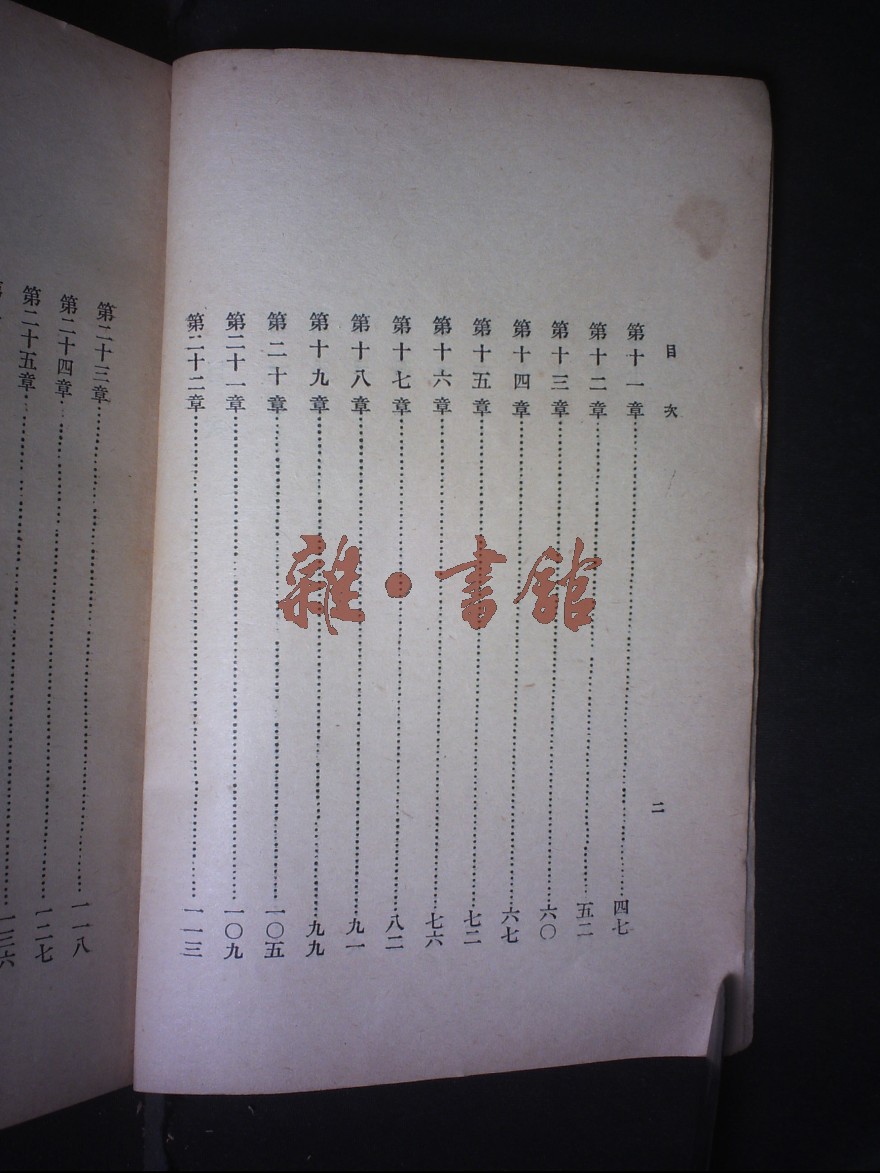 目次
二
第十一章……四七
第十二章……五二
第十三章……六〇
第十四章……六七
第十五章……七二
第十六章……七六
第十七章……八二
第十八章……九一
第十九章……九九
第二十章……一〇五
第二十一章……一〇九
第二十二章……一一三
第二十三章……一一八
第二十四章……一二七
第二十五章……一三六
雜·書館